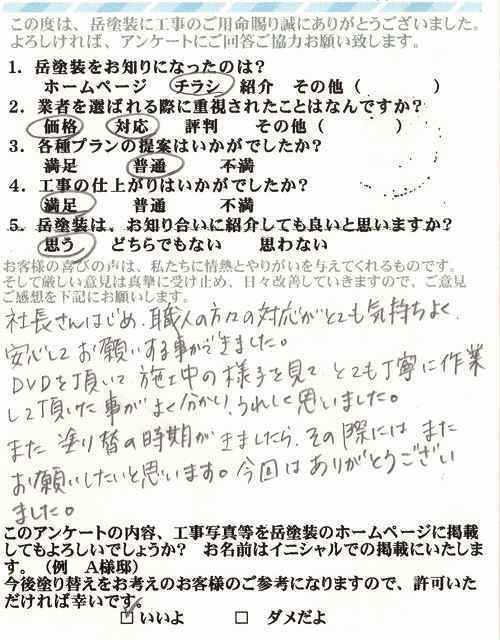 この度は、岳塗装に工事のご用命賜り誠にありがとうございました。
よろしければ、アンケートにご回答ご協力お願い致します。
1. 岳塗装をお知りになったのは?
ホームページ チラシ 紹介 その他( )
2. 業者を選ばれる際に重視されたことはなんですか?
価格 対応 評判 その他( )
3. 各種プランの提案はいかがでしたか?
満足 普通 不満
4. 工事の仕上がりはいかがでしたか?
満足 普通 不満
5. 岳塗装は、お知り合いに紹介しても良いと思いますか?
思う どちらでもない 思わない
お客様の喜びの声は、私たちに情熱とやりがいを与えてくれるものです。
そして厳しい意見は真摯に受け止め、日々改善していきますので、ご意見
ご感想を下記にお願いします。
社長さんはじめ、職人の方々の対応がとても気持ちよく、
安心してお願いする事ができました。
DVDを頂いて、施工中の様子を見て、とても丁寧に作業
して頂いた事がよく分かり、うれしく思いました。
また塗り替の時期がきましたら、その際には また
お願いしたいと思います。今回はありがとうござい
ました。
このアンケートの内容、工事写真等を岳塗装のホームページに掲載
してもよろしいでしょうか? お名前はイニシャルでの掲載にいたしま
す。(例 A様邸)
今後塗り替えをお考えのお客様のご参考になりますので、許可いた
だければ幸いです。
☑ いいよ □ ダメだよ